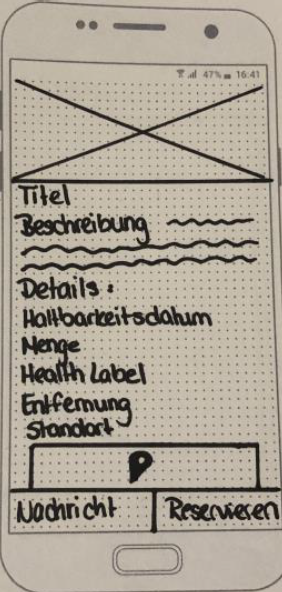 47% 16:41
Titel
Beschreibung
Details:
Haltbarkeitsdatum
Menge
Health Label
Entfernung
Standort
Nachricht Reservieren